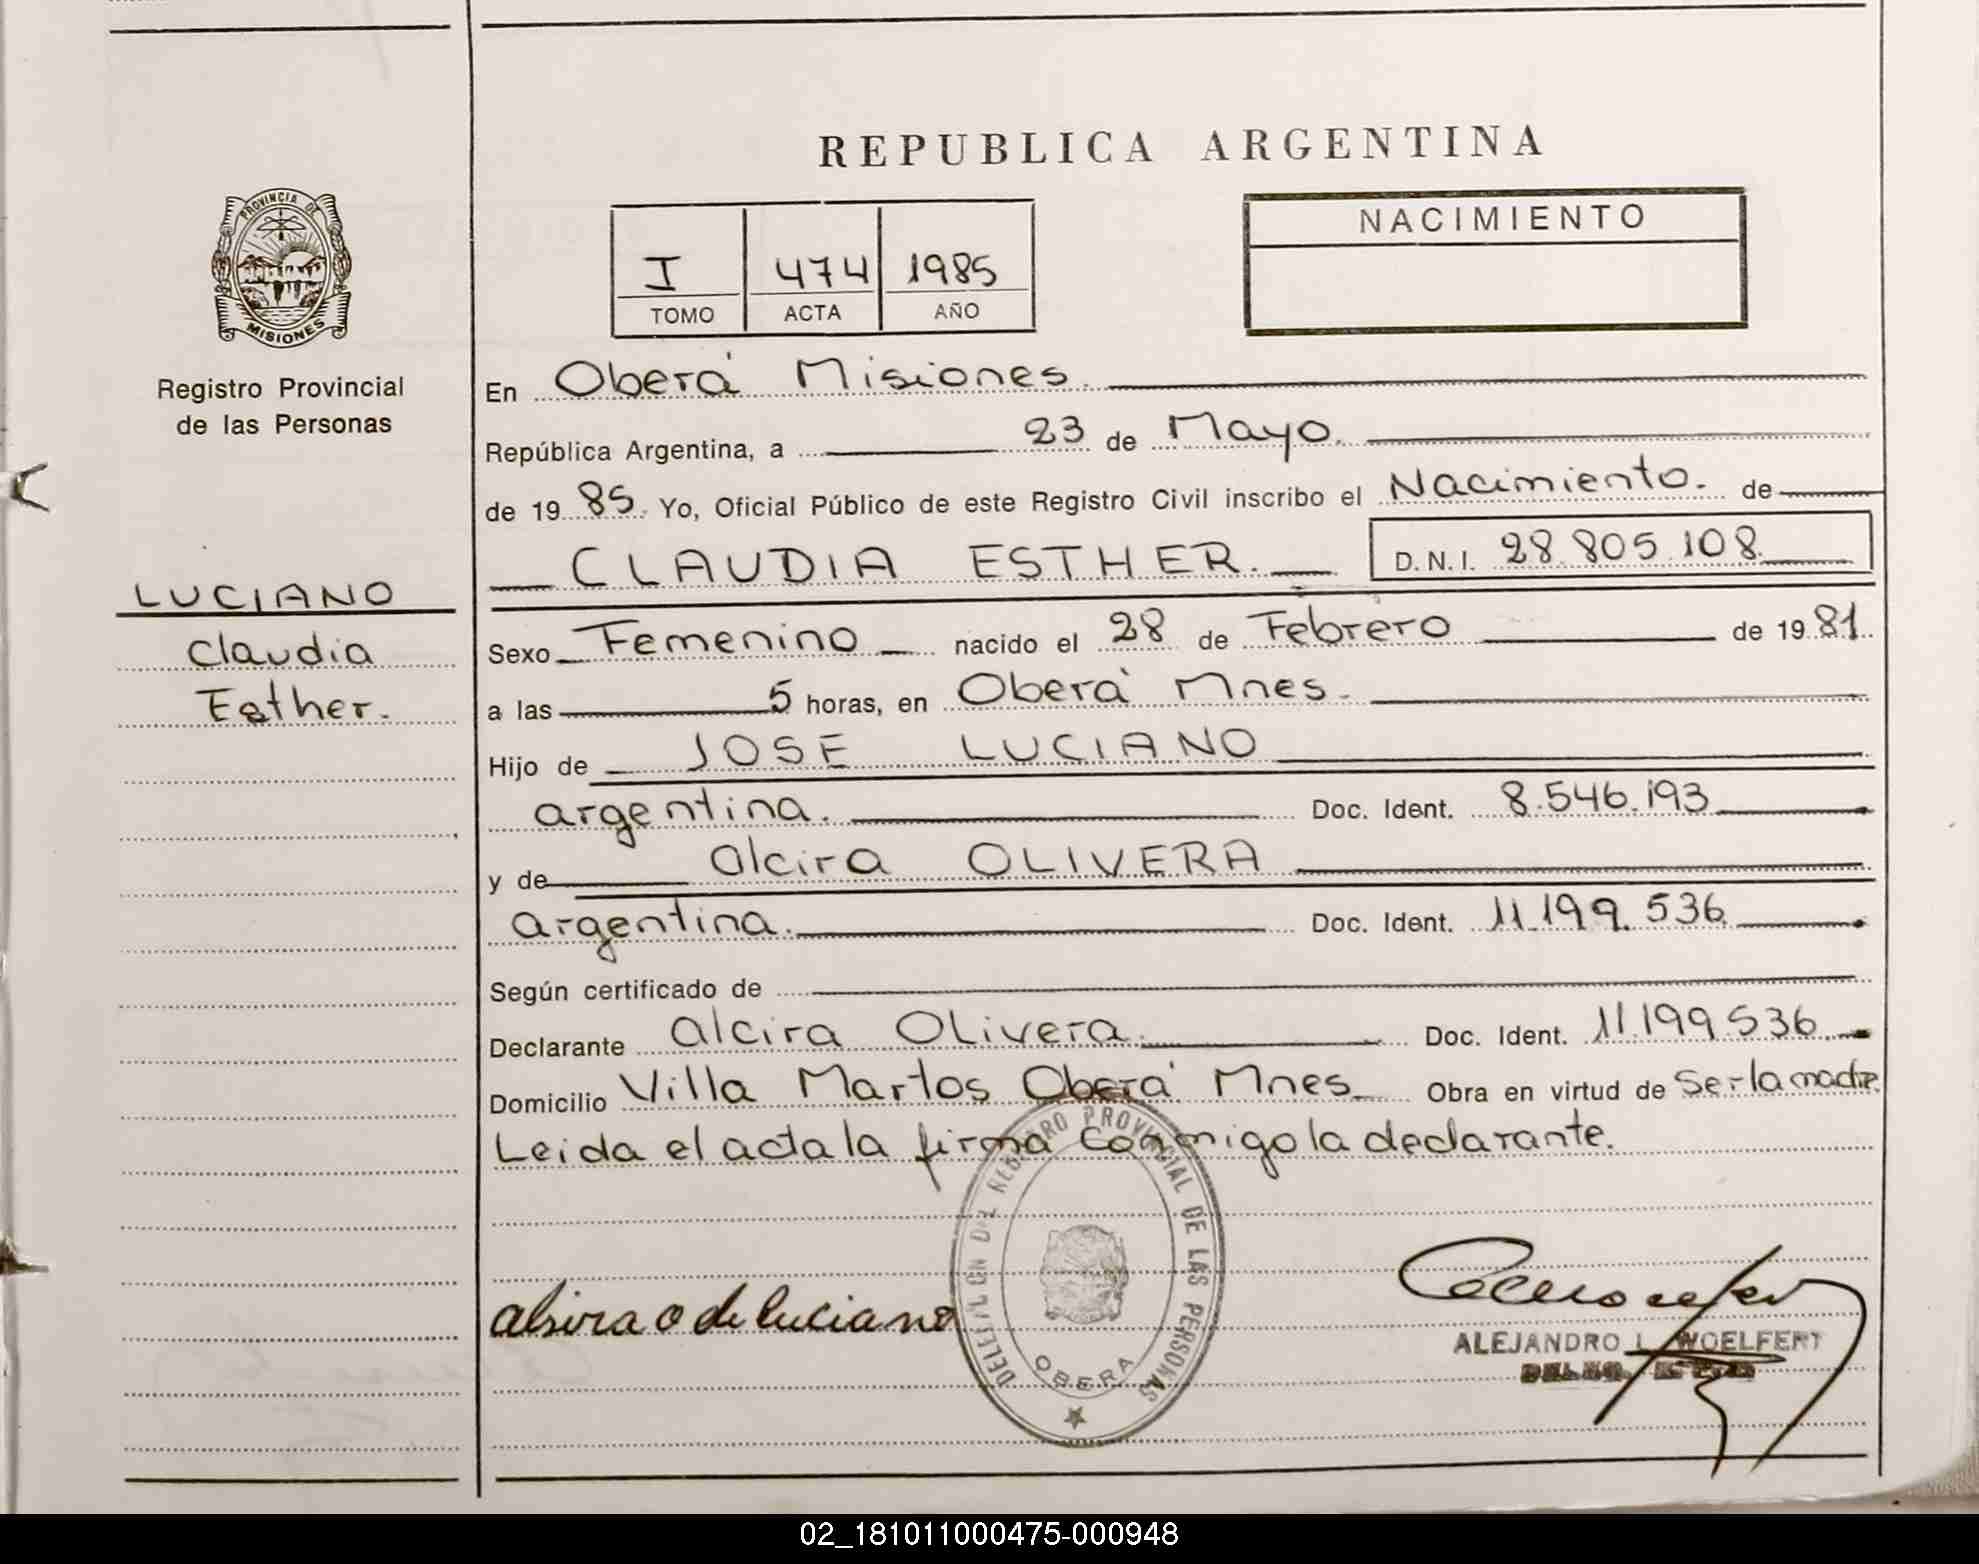 REPUBLICA ARGENTINA
PROVINCIA DE
MISIONES
Registro Provincial
de las Personas
I 474 1985
TOMO ACTA AÑO
NACIMIENTO
En Oberá Misiones.
República Argentina, a 23 de Mayo.
de 1985. Yo, Oficial Público de este Registro Civil inscribo el Nacimiento. de
CLAUDIA ESTHER. D.N.I. 28.805.108
LUCIANO
Claudia
Esther.
Sexo Femenino nacido el 28 de Febrero de 1981.
a las 5 horas, en Oberá Mnes.
Hijo de JOSE LUCIANO
argentina. Doc. Ident. 8.546.193
y de Alcira OLIVERA
argentina. Doc. Ident. 11.199.536
Según certificado de
Declarante Alcira OLivera. Doc. Ident. 11.199.536
Domicilio Villa Martos Oberá Mnes. Obra en virtud de Ser la madre.
Leida el acta la firma conmigo la declarante.
DELEGACION DEL REGISTRO PROVINCIAL DE LAS PERSONAS
OBERA
alsira o de luciano
ALEJANDRO L. WOELFERT
02_181011000475-000948